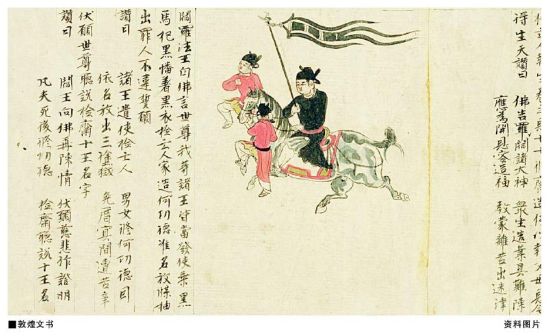 得生天讚曰 佛告閻羅諸大神 衆生造業具難陳
應爲開恩容造福 教蒙離苦出迷津
閻羅法王白佛言世尊我等諸王皆當發使乘黑
馬把黑幡著黑衣檢亡人家造何功德准名放牒抽
出罪人不違誓願
讚曰 諸王遣使檢亡人 男女修何功德因
依名放出三塗獄 免歷冥間遭苦辛
伏願世尊聽說檢齋十王名字
讚曰 閻王向佛再陳情 伏願慈悲作證明
凡夫死後修功德 檢齋聽說十王名
■敦煌文书 资料图片